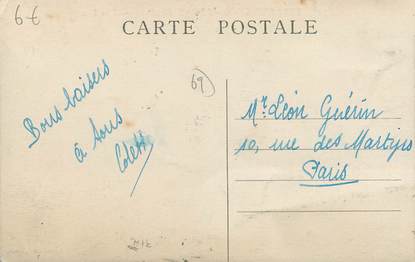 6€
CARTE POSTALE
69
Bons baisers
à tous
Colette
Mr. Léon Guérin
10, rue des Martyrs
Paris